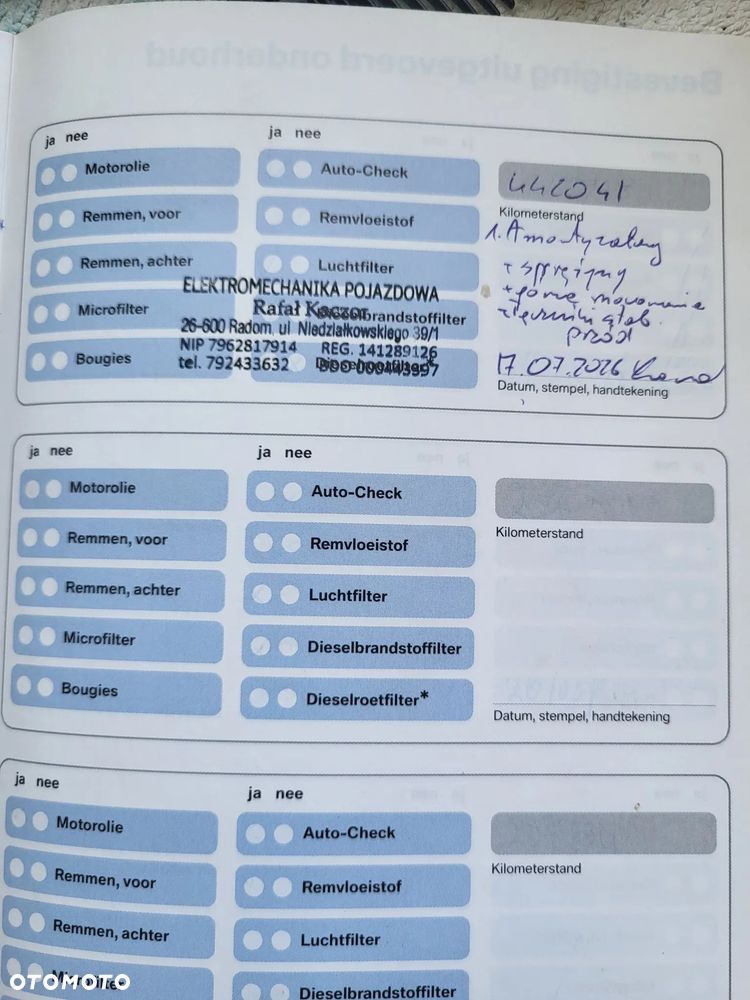 Bevestiging uitgevoerd onderhoud
ja nee
ja nee
Motorolie
Auto-Check
442041
Kilometerstand
Remmen, voor
Remvloeistof
1. Amortyzatory
Remmen, achter
Luchtfilter
+ sprężyny
ELEKTROMECHANIKA POJAZDOWA
Rafał Kaczor
Microfilter
Dieselbrandstoffilter
+ górne mocowanie
26-600 Radom, ul Niedziałkowskiego 39/1
łączniki stab.
NIP 7962817914 REG. 141289126
przód
Bougies
Dieselroetfilter*
tel. 792433632 BDO 000443997
17.07.2026
Datum, stempel, handtekening
ja nee
ja nee
Motorolie
Auto-Check
Kilometerstand
Remmen, voor
Remvloeistof
Remmen, achter
Luchtfilter
Microfilter
Dieselbrandstoffilter
Bougies
Dieselroetfilter*
Datum, stempel, handtekening
ja nee
ja nee
Motorolie
Auto-Check
Kilometerstand
Remmen, voor
Remvloeistof
Remmen, achter
Luchtfilter
Microfilter
Dieselbrandstoffilter
OTOMOTO